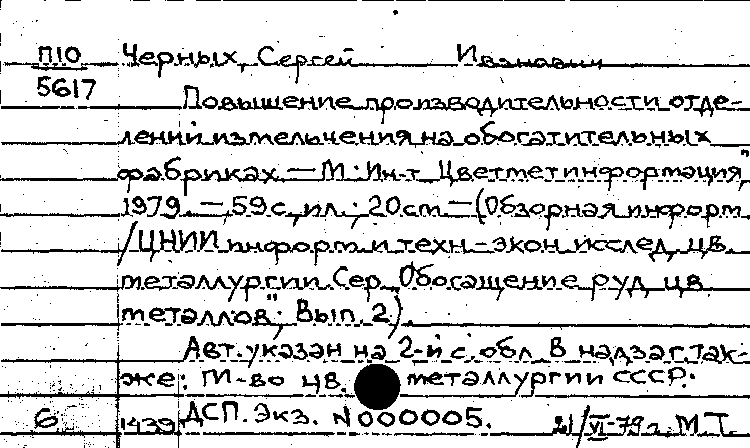 П10 Черных, Сергей Иванович
5617
Повышение производительности отде-
лений измельчения на обогатительных
фабриках. — М.: Ин-т „Цветметинформация",
1979. — 59 с., ил.; 20 cm. — (Обзорная информ.
/ЦНИИ информ. и техн.-экон. исслед. цв.
металлургии. Сер. „Обогащение руд цв.
металлов"; Вып. 2).
Авт. указан на 2-й с. обл. В надзаг. так-
же: М-во цв. металлургии СССР.
6 1439 ДСП. Экз. N000005. 21/VI-79 г. М.Т.